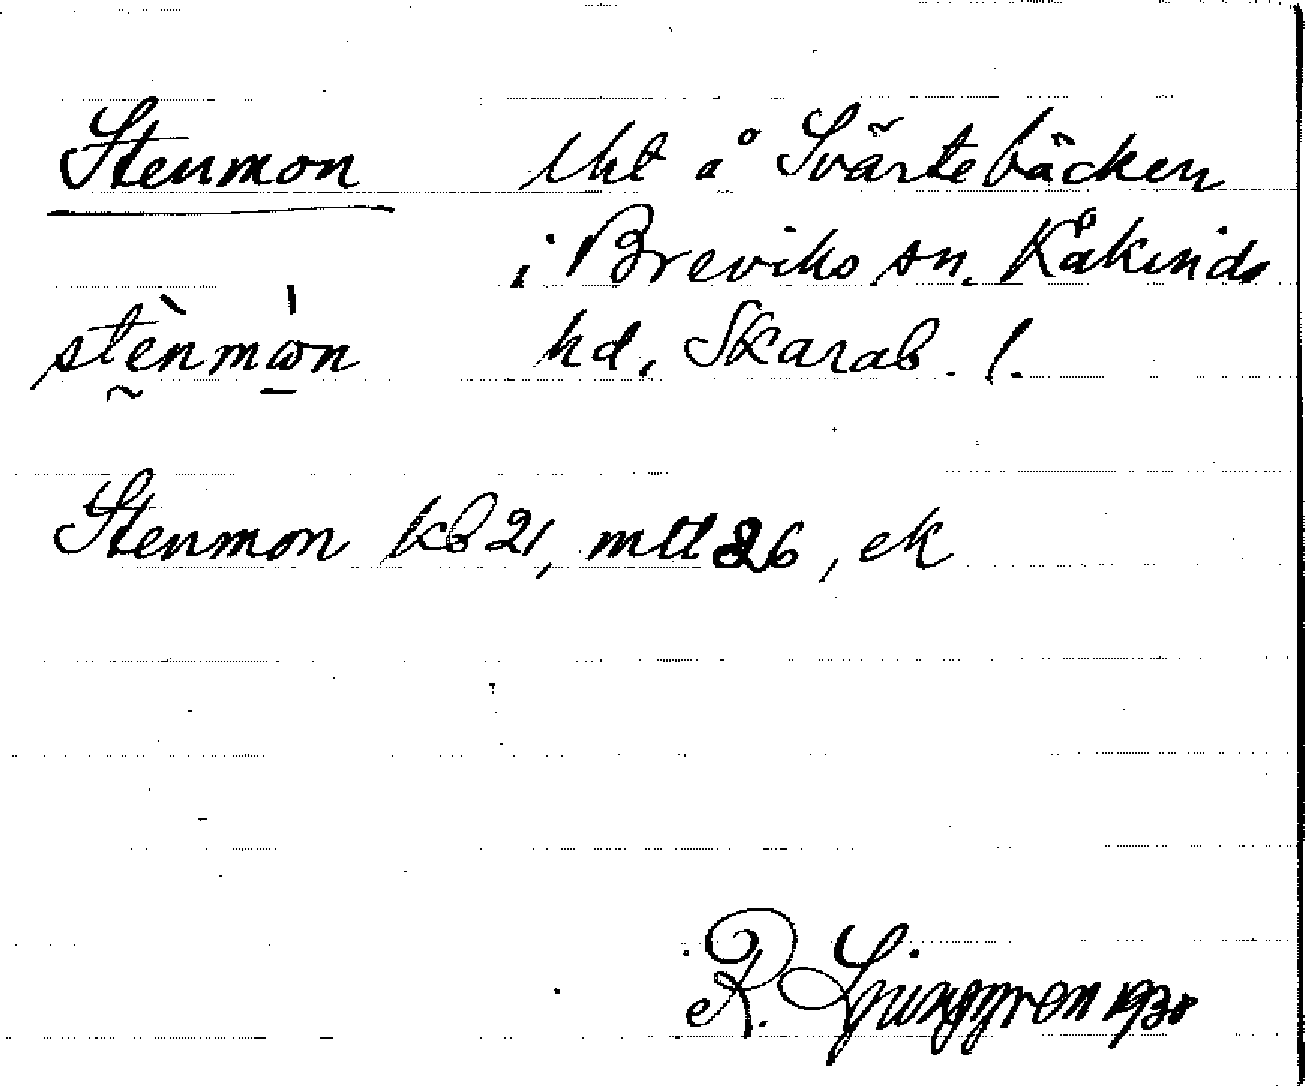 Stenmon lht å Svärtebäcken
i Breviks sn. Kåkinds
stènmòn hd, Skarab. l.
Stenmon kb 21, mtl 26, ek
R. Ljunggren 1930